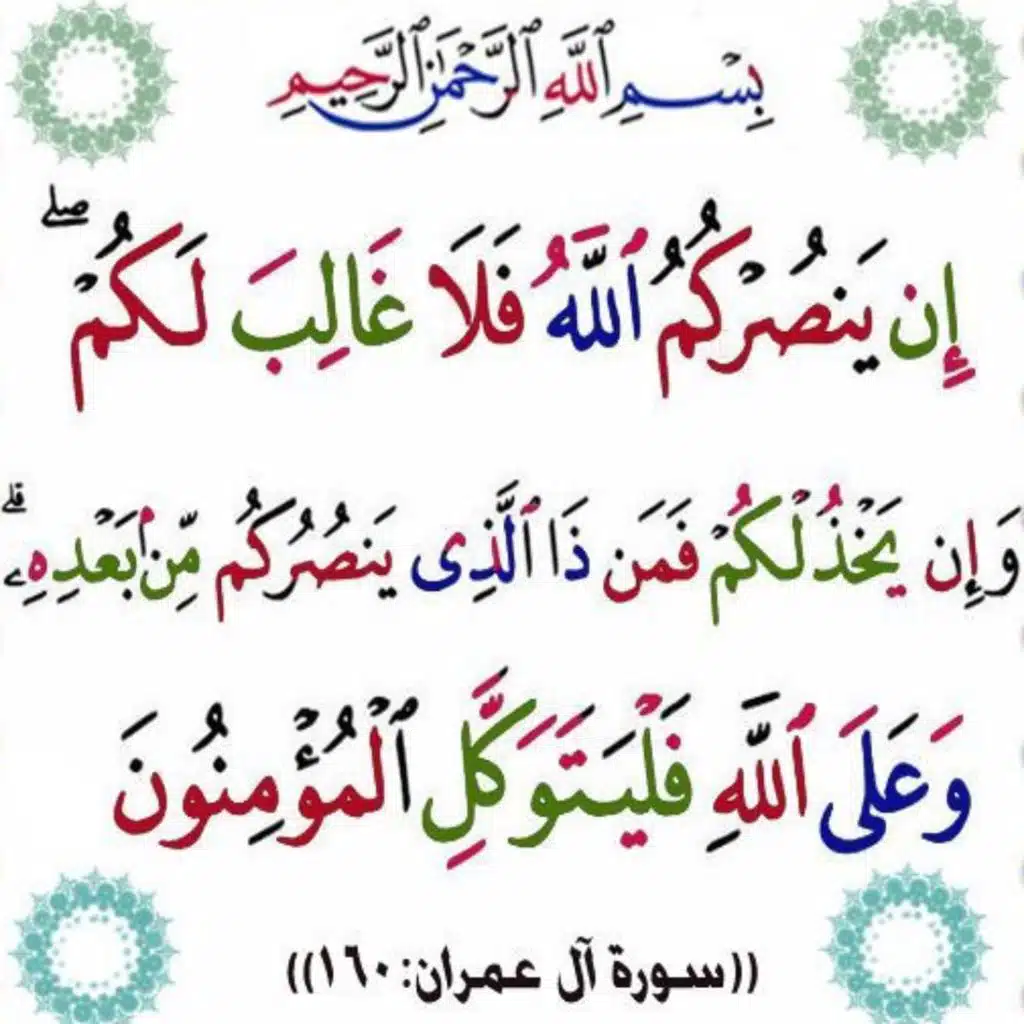 بِسْمِ اللَّهِ الرَّحْمَٰنِ الرَّحِيمِ
إِن يَنصُرْكُمُ ٱللَّهُ فَلَا غَالِبَ لَكُمْ ۖ
وَإِن يَخْذُلْكُمْ فَمَن ذَا ٱلَّذِى يَنصُرُكُم مِّنۢ بَعْدِهِۦ ۗ
وَعَلَى ٱللَّهِ فَلْيَتَوَكَّلِ ٱلْمُؤْمِنُونَ
((سورة آل عمران: ١٦٠))